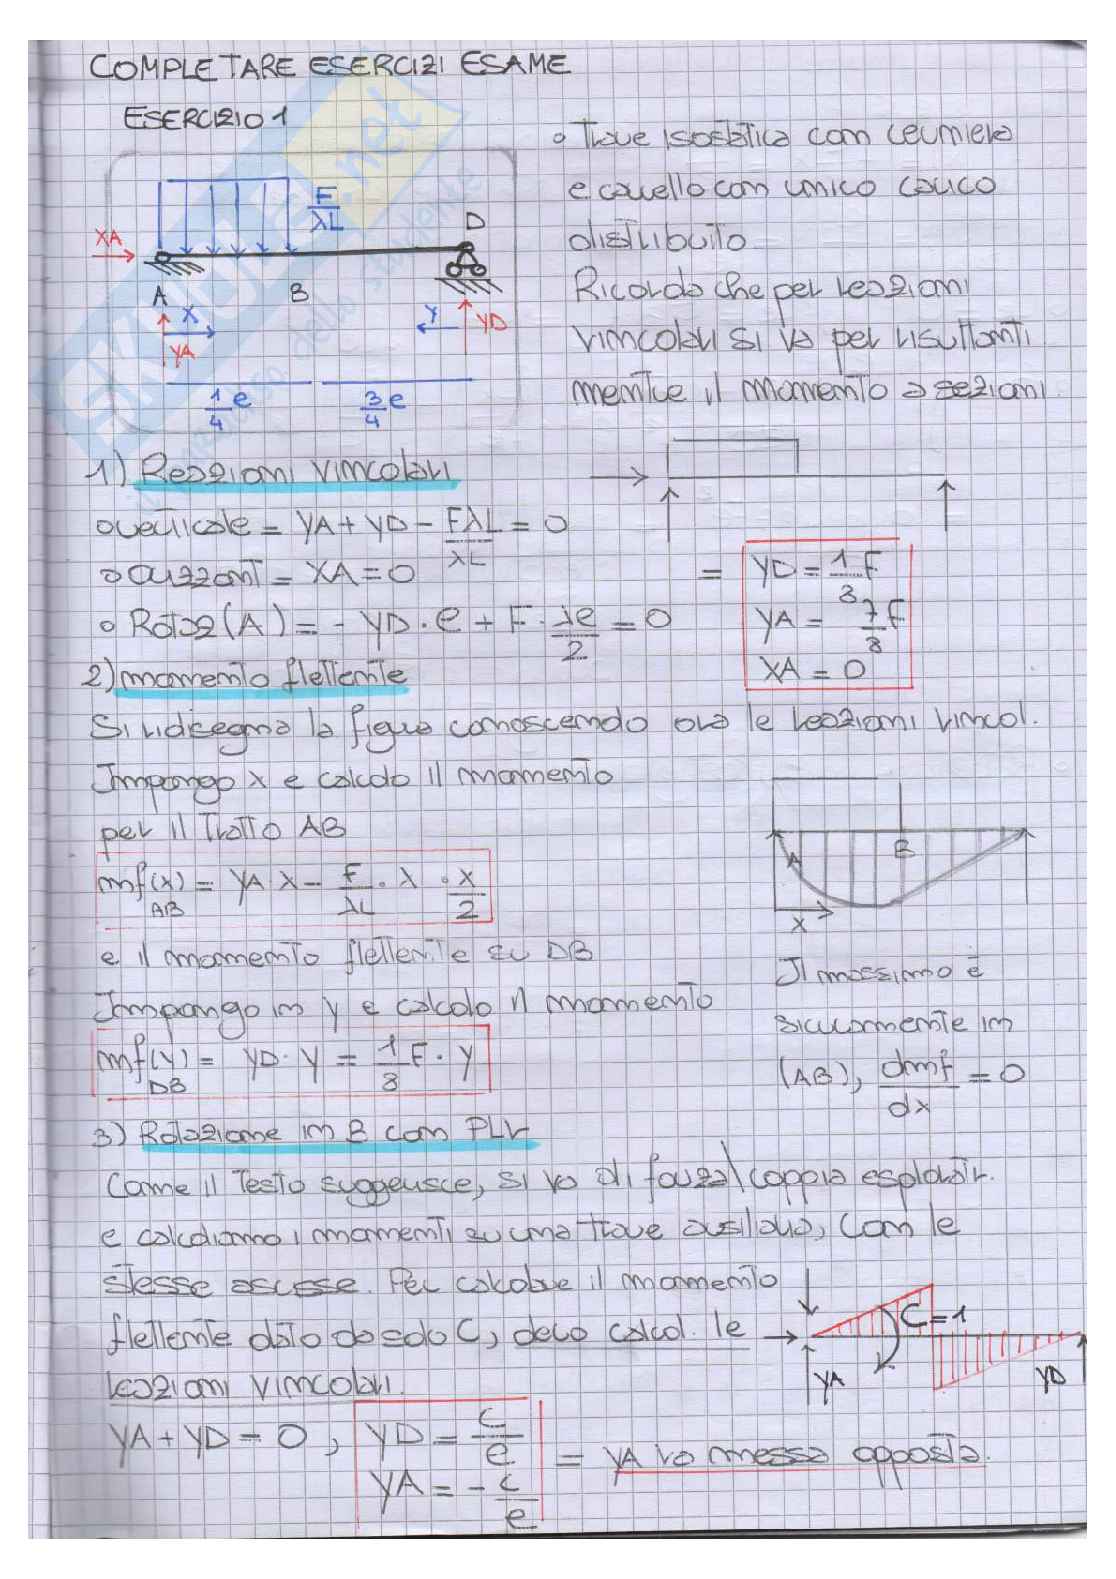 COMPLETARE ESERCIZI ESAME
ESERCIZIO 1
F
λL
XA
A
B
D
X
YA
Y
YD
1/4 e
3/4 e
o Trave isostatica con cerniera
e carrello con unico carico
distribuito
Ricorda che per reazioni
vincolari si va per risultanti
mentre il momento a sezioni.
1) Reazioni vincolari
o verticale = YA + YD - FλL/λL = 0
o Orizzont = XA = 0
o Rotaz(A) = - YD · e + F · λe/2 = 0
= YD = 1/8 F
YA = 7/8 F
XA = 0
2) momento flettente
Si ridisegna la figura conoscendo ora le reazioni vincol.
Impongo x e calcolo il momento
per il Tratto AB
mf(x) AB = YA · X - F/λL · λ · x/2
A
B
X
e il momento flettente su DB
Impongo in y e calcolo il momento
mf(y) DB = YD · Y = 1/8 F · Y
Il massimo è
sicuramente in
(AB), dmf/dx = 0
3) Rotazione in B con PLV
Come il Testo suggerisce, si va di forza\coppia esploratr.
e calcoliamo i momenti su una trave ausiliaria, con le
stesse ascisse. Per calcolare il momento
flettente dato da solo C, devo calcol. le
reazioni vincolari.
C=1
YA
YD
YA + YD = 0, YD = C/e
YA = - C/e
= YA va messa opposta.